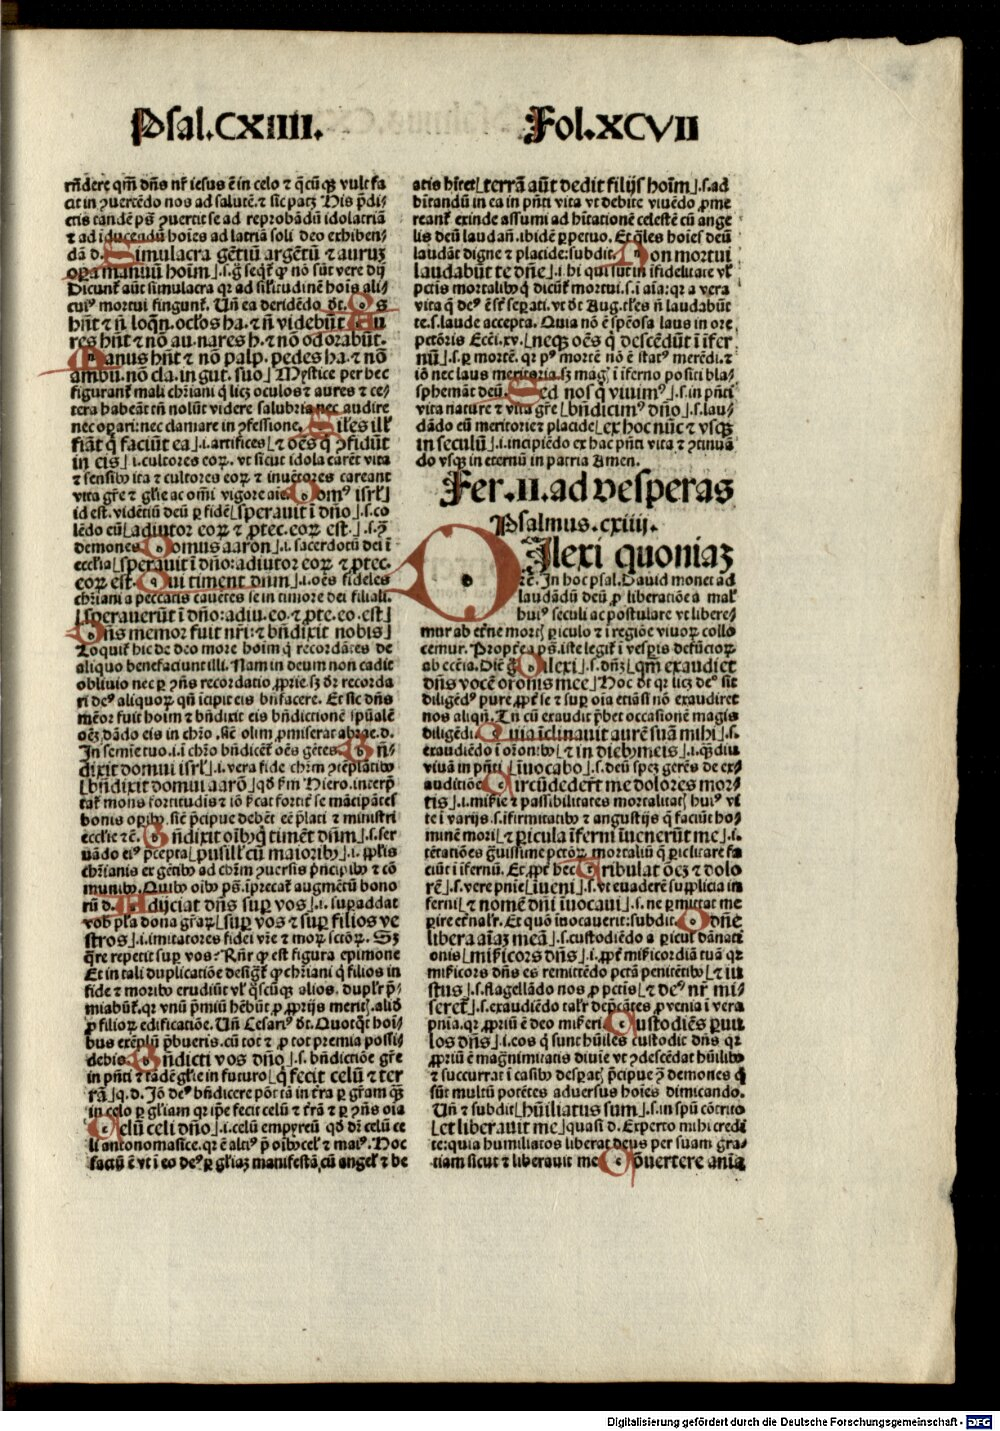 Psal.CXIIII.
Fol.XCVII
rñdere qm̄ dn̄s nr̄ iesus ē in celo ⁊ q̄cūqꝫ vult fa
cit in ꝯuertēdo nos ad salutē.⁊ sic patꝫ His p̄di⸗
ctis tandē ps̄ ꝯuertit se ad reprobādū idolatriā
⁊ ad iducendū hoīes ad latriā soli deo exhiben⸗
dā d. Simulacra gētiū argētū ⁊ auruꝫ
oꝑa manuū hoīm⌋.s.
Dicunt aūt simulacra qr ad silitudinē hoīs ali⸗
cuiꝰ mortui fingunt. Un̄ ea deridēdo dt. Os
hn̄t ⁊ n̄ loqn̄.oclos ha.⁊ n̄ videbūt Au
res hn̄t ⁊ nō au.nares h.⁊ nō odorabūt.
Manus hn̄t ⁊ nō palp.pedes ha.⁊ nō
ambu.nō cla.in gut.suo⌋ Mystice per hec
figurant mali chr̄iani q̄ licꝫ oculos ⁊ aures ⁊ ce⸗
tera habeāt tn̄ nolūt videre salubria nec audire
nec oꝑari:nec clamare in ꝯfessione. Siles ill
fiāt q̄ faciūt ea⌋.i.artifices⌊⁊ oēs q̄ ꝯfidūt
in eis⌋ i.cultores eoꝝ. vt sicut idola carēt vita
⁊ sensiw ita ⁊ cultores eoꝝ ⁊ inuētores careant
vita gr̄e ⁊ gl̄ie ac omī vigore aie. Domꝰ isrl⌋
id est.videtiū deū ꝑ fidē⌊sperauit ī dn̄o⌋.s.co
lēdo eū⌊adiutor eoꝝ ⁊ ꝓtec.eoꝝ est.⌋.s.
demones Domus aaron⌋.i.sacerdotū dei ī
ecclia⌊sperauit ī dn̄o:adiutor eoꝝ ⁊ ꝓtec.
eoꝝ est. Qui timent dnm⌋.i.oēs fideles
chr̄iani a peccatis cauētes se in timore dei filiali.
⌊sperauerūt ī dn̄o:adiu.eo.⁊ ꝓte.eo.est⌋
Dn̄s memor fuit nr̄i:⁊ bn̄dixit nobis⌋
Loquit hic de deo more hoīm q̄ recordātes de
aliquo benefaciunt illi. Nam in deum non cadit
obliuio nec ꝑ ꝯn̄s recordatio ꝓprie sꝫ dr recorda
ri deꝰ aliquoꝝ qn̄ icipit eis bn̄facere. Et sic dn̄s
mēor fuit hoīm ⁊ bn̄dixit eis bn̄dictionē spūalē
oēꝫ dādo eis in chro.sic̄ olim ꝓmiserat abrae.d.
In semīe tuo.i.ī chro bn̄dicent oēs gētes. Bn̄⸗
dixit domui isrl⌋.i.vera fide chrm ꝯtēplatiw
⌊bn̄dixit domui aarō⌋
tat mons fortitudis ⁊ iō
bonis oꝑiw.sic̄ p̄cipue debēt eē p̄lati ⁊ ministri
ecclie ⁊c̄. Bn̄dixit oīb q̄ timēt dn̄m⌋.s.ser
uādo eiꝰ p̄cepta⌊pusill cū maioriw⌋.i. pplis
chr̄ianis ex gētiw ad chrm ꝯuersis p̄ncipiw ⁊ cō
muniw. Quiw oiw ps̄.ip̄recat augmētū bono
rū d. Adijciat dn̄s suꝑ vos⌋.i. suꝑaddat
vob pla dona gr̄aꝝ⌊suꝑ vos ⁊ suꝑ filios ve
stros⌋.i.imitatores fidei vr̄e ⁊ moꝝ sctōꝝ. Sꝫ
q̄re repetit suꝑ vos? Rn̄r ꝙ est figura epimone
Et in tali duplicatiōe desigt ꝙ chr̄iani q̄ filios in
fide ⁊ moriw erudiūt vl q̄scūqꝫ alios. duplr p̄⸗
miabunt.qr vnū p̄miū hēbūt ꝓ ꝓprijs merit.aliō
ꝓ filioꝝ edificatiōe. Un̄ Cesariꝰ dt. Quotqt hoī⸗
bus exēplū p̄bueris.cū tot ⁊ ꝓ tot premia possi⸗
debis. Bn̄dicti vos dn̄o⌋.s. bn̄dictiōe gr̄e
in pn̄ti ⁊ tādē gl̄ie in futuro⌊q̄ fecit celū ⁊ ter
rā⌋q.d.
in celo ꝑ gl̄iam qr ip̄e fecit celū ⁊ t̄rā ⁊ ꝑ ꝯn̄s oia
Celū celi dn̄o⌋.i.celū empyreū qd dr celū ce
li antonomasice.qr ē altiꝰ p̄ oīw cel ⁊ maiꝰ. Hoc
factū ē vt ī eo deꝰ ꝑ gl̄iaꝫ manifestā cū angel ⁊ be
atis hītet⌊terrā aūt dedit filijs hoīm⌋.s.ad
bītandū in ea in pn̄ti vita vt debite viuēdo ꝓme
reant exinde assumi ad hītationē celestē cū ange
lis deū laudan.ibidē ꝑpetuo. Et q̄les hoīes deū
laudāt digne ⁊ placide:subdit. Non mortui
laudabūt te dn̄e⌋.i.hi qui sūt in ifidelitate vl
pctis mortaliw q̄ dicunt mortui.s.ī aīa:qr a vera
vita q̄ deꝰ ē st seꝑati.vt dt Aug.tles n̄ laudabūt
te.s.laude accepta. Quia nō ē spēosa laus in ore
pctōris Ecci.xv.⌊neqꝫ oēs q̄ descēdūt ī ifer
nū⌋.s.ꝑ mortē.qr pꝰ mortē nō ē statꝰ merēdi.⁊
iō nec laus meritoria.sꝫ mag ī iferno positi bla⸗
sphemāt deū. Sed nos q̄ viuimꝰ⌋.s.in pn̄ti
vita nature ⁊ vita gr̄e⌊bn̄dicimꝰ dn̄o⌋.s.lau⸗
dādo eū meritorie ⁊ placide⌊ex hoc nūc ⁊ vsqꝫ
in seculū⌋.i.incipiēdo ex hac pn̄ti vita ⁊ ꝯtinuā
do vsqꝫ in eternū in patria Amen.
Fer.II.ad vesperas
Psalmus.cxiiij.
Dilexi quoniaꝫ
⁊c̄. In hoc psal. Dauid monet ad
laudādū deū ꝓ liberatiōe a mal
huiꝰ seculi ac postulare vt libere⸗
mur ab et̄ne mort ꝑiculo ⁊ ī regiōe viuoꝝ collo
cemur. Propt̄ea ps̄.iste legit ī vesꝑis defūctoꝝ
ab ecc̄ia. Dic̄ Dilexi⌋.s.dn̄ꝫ⌊qm̄ exaudiet
dn̄s vocē or̄onis mee⌋ Hoc dt qr licꝫ deꝰ sit
diligēdꝰ pure ꝓpt se ⁊ suꝑ oia etiāsi nō exaudiret
nos aliqn̄. Tn̄ cū exaudit p̄bet occasionē magis
diligēdi. Quia iclinauit aurē suā mihi⌋.s.
exaudiēdo ī or̄oniw⌊⁊ in dieb meis⌋.i.qꝫdiu
viuā in pn̄ti⌊iuocabo⌋.s.deū speꝫ gerēs de ex⸗
auditiōe. Circūdedert me dolores mor⸗
tis⌋.i.misie ⁊ passibilitates mortalitat huiꝰ vi
te ī varijs.s.ifirmitatiw ⁊ angustijs q̄ faciūt ho⸗
minē mori⌊⁊ ꝑicula īferni iuenerūt me⌋.i.
tētatiōes grauissime pctōꝝ mortaliū q̄ ꝑiclitare fa
ciūt ī ifernū. Et ꝓpt hec Tribulatōeꝫ ⁊ dolo
rē⌋.s.vere pnie⌊iueni⌋.s.vt euaderē supplicia in
ferni⌊⁊ nomē dn̄i iuocaui⌋.s.ne ꝑmittat me
ꝑire et̄nalr. Et quō iuocauerit:subdit. O dn̄e
libera aiaꝫ meā⌋.s.custodiēdo a ꝑicul dānati
onis⌊misicors dn̄s⌋.i. ꝓpt misicordiā tuā qr
misicors dn̄s es remittēdo pctā penitētiw⌊⁊ iu
stus⌋.s.flagellādo nos ꝓ pctis⌊⁊ deꝰ nr̄ mi⸗
seret⌋.s.exaudiēdo talr dep̄cātes ꝓ venia ī vera
pnia.qr ꝓpriū ē deo miseri. Custodiēs ꝑuu
los dn̄s⌋.i.eos q̄ sunt hūiles custodit dn̄s qr
ꝓpriū ē magnimitatis diuie vt ꝯdescēdat hūiliw
⁊ succurrat ī casiw desꝑat p̄cipue ꝯ demones q̄
sūt multū potētes aduersus hoīes dimicando.
Un̄ ⁊ subdit⌊hūiliatus sum⌋.s.in spū cōtrito
⌊et liberauit me⌋quasi d. Experto mihi credi
te:quia humiliatos liberat deus per suam gra⸗
tiam sicut ⁊ liberauit me. Cōuertere anīa
Digitalisierung gefördert durch die Deutsche Forschungsgemeinschaft - DFG